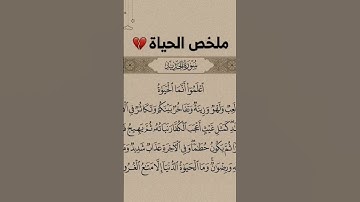 ملخص الحياة 💔
سُورَةُ الحَدِيدِ
ٱعْلَمُوٓا۟ أَنَّمَا ٱلْحَيَوٰةُ
لَعِبٌ وَلَهْوٌ وَزِينَةٌ وَتَفَاخُرٌۢ بَيْنَكُمْ وَتَكَاثُرٌ فِى
كَمَثَلِ غَيْثٍ أَعْجَبَ ٱلْكُفَّارَ نَبَاتُهُۥ ثُمَّ يَهِيجُ
ثُمَّ يَكُونُ حُطَٰمًا وَفِى ٱلْـَٔاخِرَةِ عَذَابٌ شَدِيدٌ
وَرِضْوَٰنٌ وَمَا ٱلْحَيَوٰةُ ٱلدُّنْيَآ إِلَّا مَتَٰعُ